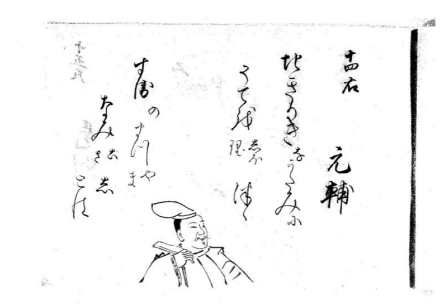 十四右
元輔
ちきりきなかたみに
そてを
しほり
つゝ
すゑの
まつや
ま
なみこ
さし
とは